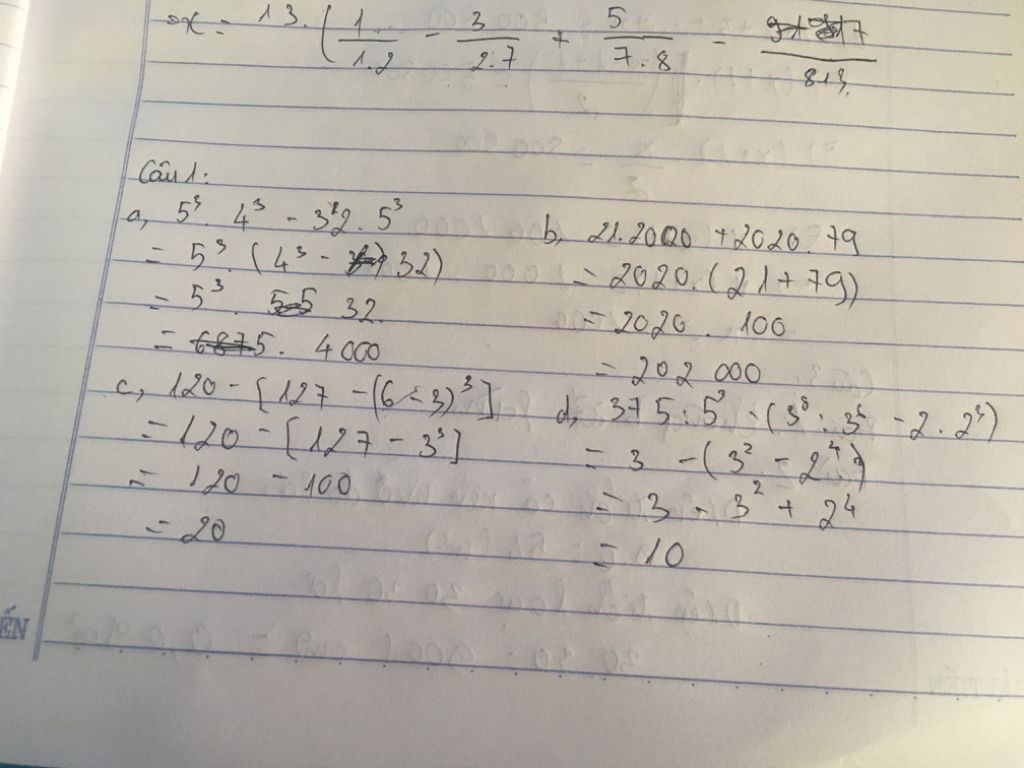 =>x = 13.(1/1.2 - 3/2.7 + 5/7.8 - 7/8+3
Câu 1:
a, 5³. 4³ - 32. 5³
= 5³. (4³ - 32)
= 5³. 32
= 4 000
b, 21.2020 + 2020. 79
= 2020.(21 + 79)
= 2020. 100
= 202 000
c, 120 - [127 - (6 - 3)³]
= 120 - [127 - 3³]
= 120 - 100
= 20
d, 375 : 5³ - (3⁸ : 3⁶ - 2. 2³)
= 3 - (3² - 2⁴)
= 3 - 3² + 2⁴
= 10
ẾN